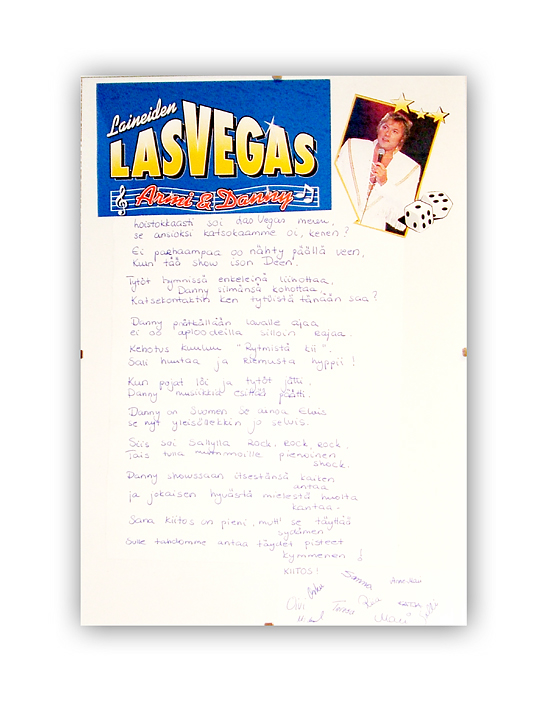 Laineiden
LAS VEGAS
Armi & Danny
Loistokkaasti soi Las Vegas menun,
se ansioksi katsokaamme oi, kenen?
Ei parhaampaa oo nähty päällä veen,
kuin tää show ison Deen.
Tytöt hymnissä enkeleinä liihottaa,
Danny silmänsä kohottaa.
Katsekontaktin ken tytöistä tänään saa?
Danny prätkällään lavalle ajaa
ei oo aplodeilla silloin rajaa.
Kehotus kuuluu "Rytmistä kii".
Sali huutaa ja riemusta hyppii!
Kun pojat löi ja tytöt jätti,
Danny musiikkia esittää päätti.
Danny on Suomen se ainoa Elvis
se nyt yleisöllekkin jo selvis.
Siis soi Sallylla Rock, Rock, Rock,
Tais tulla pienoinen
shock.
Danny showssaan itsestänsä kaiken
antaa
ja jokaisen hyvästä mielestä huolta
kantaa.
Sana kiitos on pieni, mutt' se täyttää
sydämen
Sulle tahdomme antaa täydet pisteet
kymmenen!
KIITOS!
Sanna
Olli